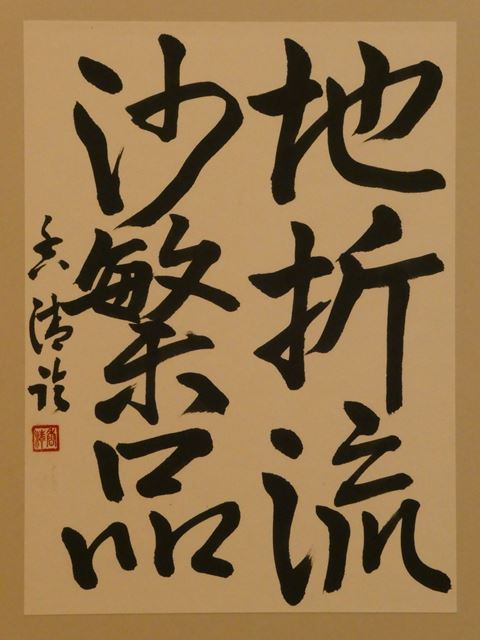 地折流
沙繁品